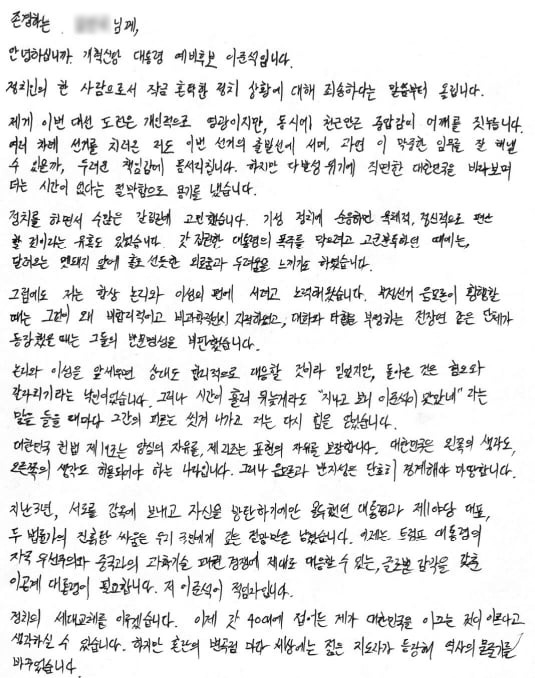 존경하는 님께,
안녕하십니까 개혁신당 대통령 예비후보 이준석입니다.
정치인의 한 사람으로서 작금 혼탁한 정치 상황에 대해 죄송하다는 말씀부터 올립니다.
제게 이번 대선 도전은 개인적으로 영광이지만, 동시에 천근만근 중압감이 어깨를 짓누릅니다.
여러 차례 선거를 치러온 저도 이번 선거의 출발선에 서며, 과연 이 막중한 임무를 잘 해낼
수 있을까, 두려운 책임감에 몸서리칩니다. 하지만 다발성 위기에 직면한 대한민국을 바라보며
더는 시간이 없다는 절박함으로 용기를 냈습니다.
정치를 하면서 수많은 갈림길에 고민했습니다. 기성 정치에 순응하면 육체적, 정신적으로 편안
할 것이라는 유혹도 있었습니다. 갓 집권한 대통령의 폭주를 막으려고 고군분투하던 때에는,
달려오는 멧돼지 앞에 홀로 선듯한 외로움과 두려움을 느끼기도 하였습니다.
그럼에도 저는 항상 논리와 이성의 편에 서려고 노력해왔습니다. 부정선거 음모론이 횡행할
때는 그것이 왜 비합리적이고 비과학적인지 지적하였고, 대화와 타협을 부정하는 전장연 같은 단체가
등장했을 때는 그들의 반문명성을 비판했습니다.
논리와 이성을 앞세우면 상대도 합리적으로 대응할 것이라 믿었지만, 돌아온 것은 혐오와
갈라치기라는 낙인이었습니다. 그러나 시간이 흘러 뒤늦게라도 "지나고 보니 이준석이 맞았네" 라는
말을 들을 때마다 그간의 피로는 씻겨 나가고 저는 다시 힘을 얻었습니다.
대한민국 헌법 제19조는 양심의 자유를, 제21조는 표현의 자유를 보장합니다. 대한민국은 왼쪽의 생각도,
오른쪽의 생각도 허용되어야 하는 나라입니다. 그러나 음모론과 반지성은 단호히 경계해야 마땅합니다.
지난 3년, 서로를 감옥에 보내고 자신을 방탄하기에만 몰두했던 대통령과 제1야당 대표,
두 법률가의 진흙탕 싸움은 우리 국민에게 깊은 절망만을 남겼습니다. 이제는 트럼프 대통령의
자국 우선주의와 중국과의 과학기술 패권 경쟁에 제대로 대응할 수 있는, 글로벌 감각을 갖춘
이공계 대통령이 필요합니다. 저 이준석이 적임자입니다.
정치의 세대교체를 이루겠습니다. 이제 갓 40대에 접어든 제가 대한민국을 이끄는 것이 이르다고
생각하실 수 있습니다. 하지만 혼란의 변곡점 마다 세상에는 젊은 지도자가 등장해 역사의 물줄기를
바꾸었습니다.